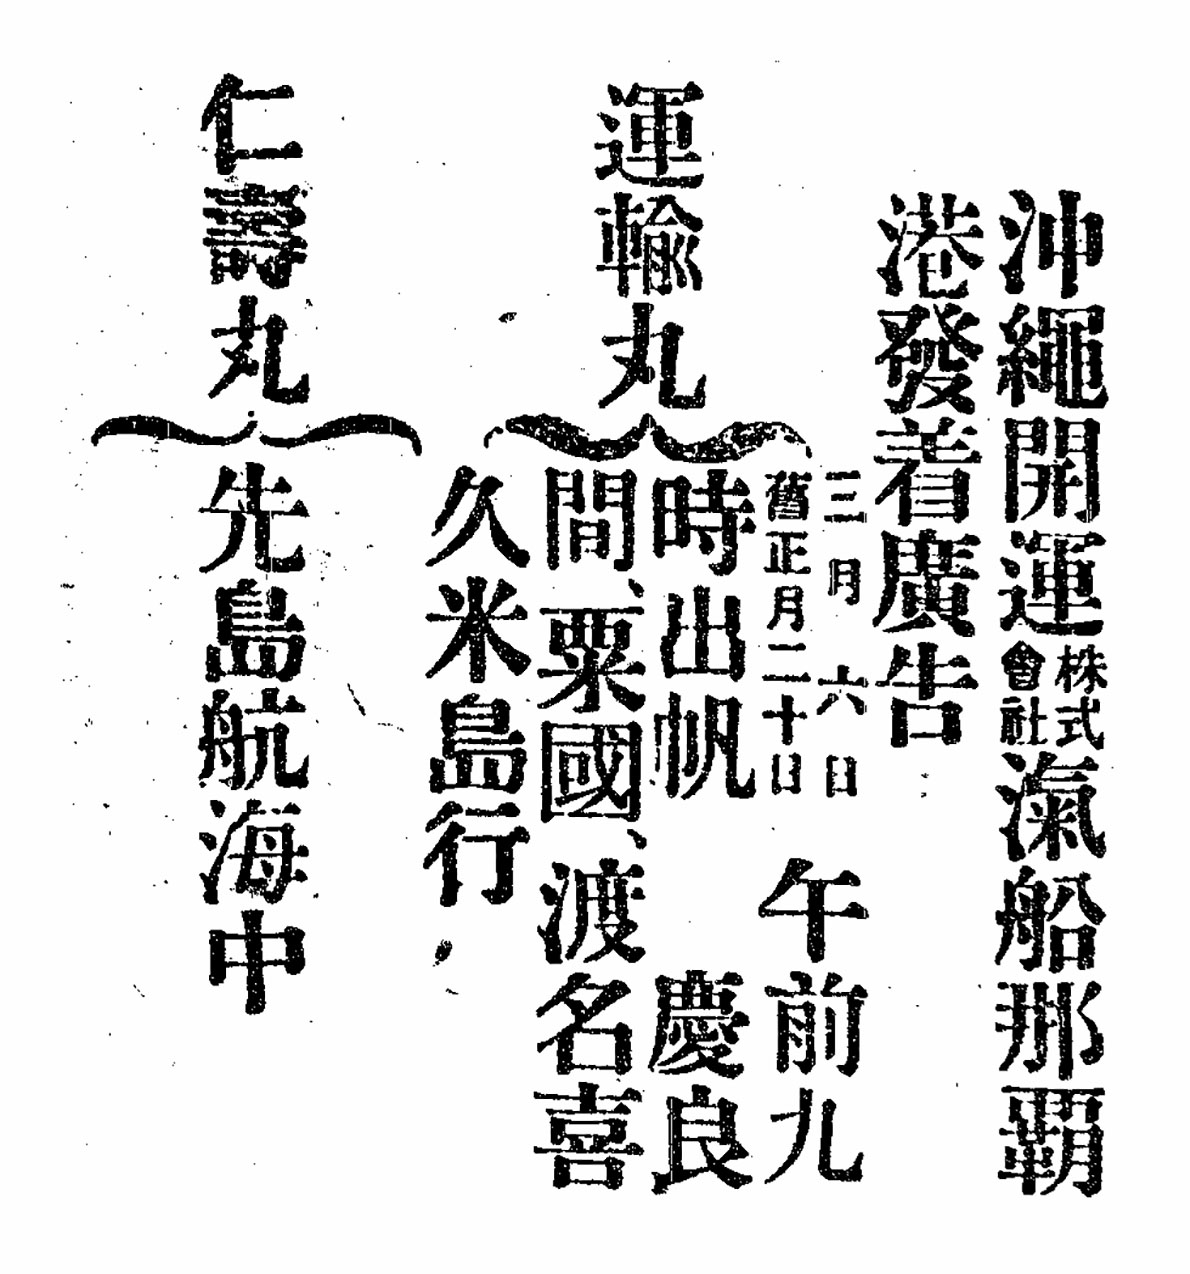 沖繩開運株式會社滊船那覇
港發着廣告
運輸丸
三月六日
舊正月二十日
午前九
時出帆 慶良
間、粟國、渡名喜
久米島行
仁壽丸
先島航海中